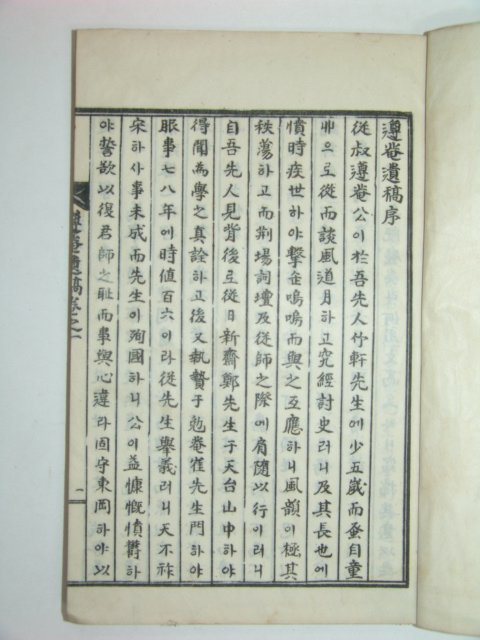 遵菴遺稿序
從叔遵菴公이於吾先人竹軒先生에少五歲而蚤自童
丱으로從而談風道月하고究經討史러니及其長也에
憤時疾世하야擊缶嗚嗚而與之互應하니風韻이極其
秩蕩하고而荊場詞壇及從師之隊에肩隨以行이러니
自吾先人見背後로從日新齋鄭先生于天台山中하야
得聞為學之真詮하고後又執贄于勉菴崔先生門하야
服事七八年에時値百六이라從先生擧義러니天不祚
宋하사事未成而先生이殉國하니公이益慷慨憤鬱하
야誓欲以復君師之耻而事與心違라固守東岡하야以
遵菴遺稿卷之一
一